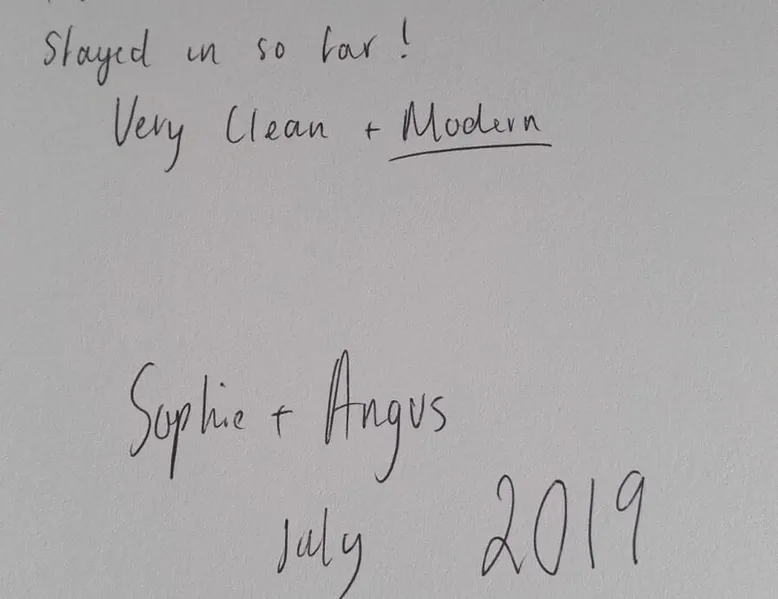 Stayed in so far!
Very Clean + Modern
Sophie + Angus
July 2019